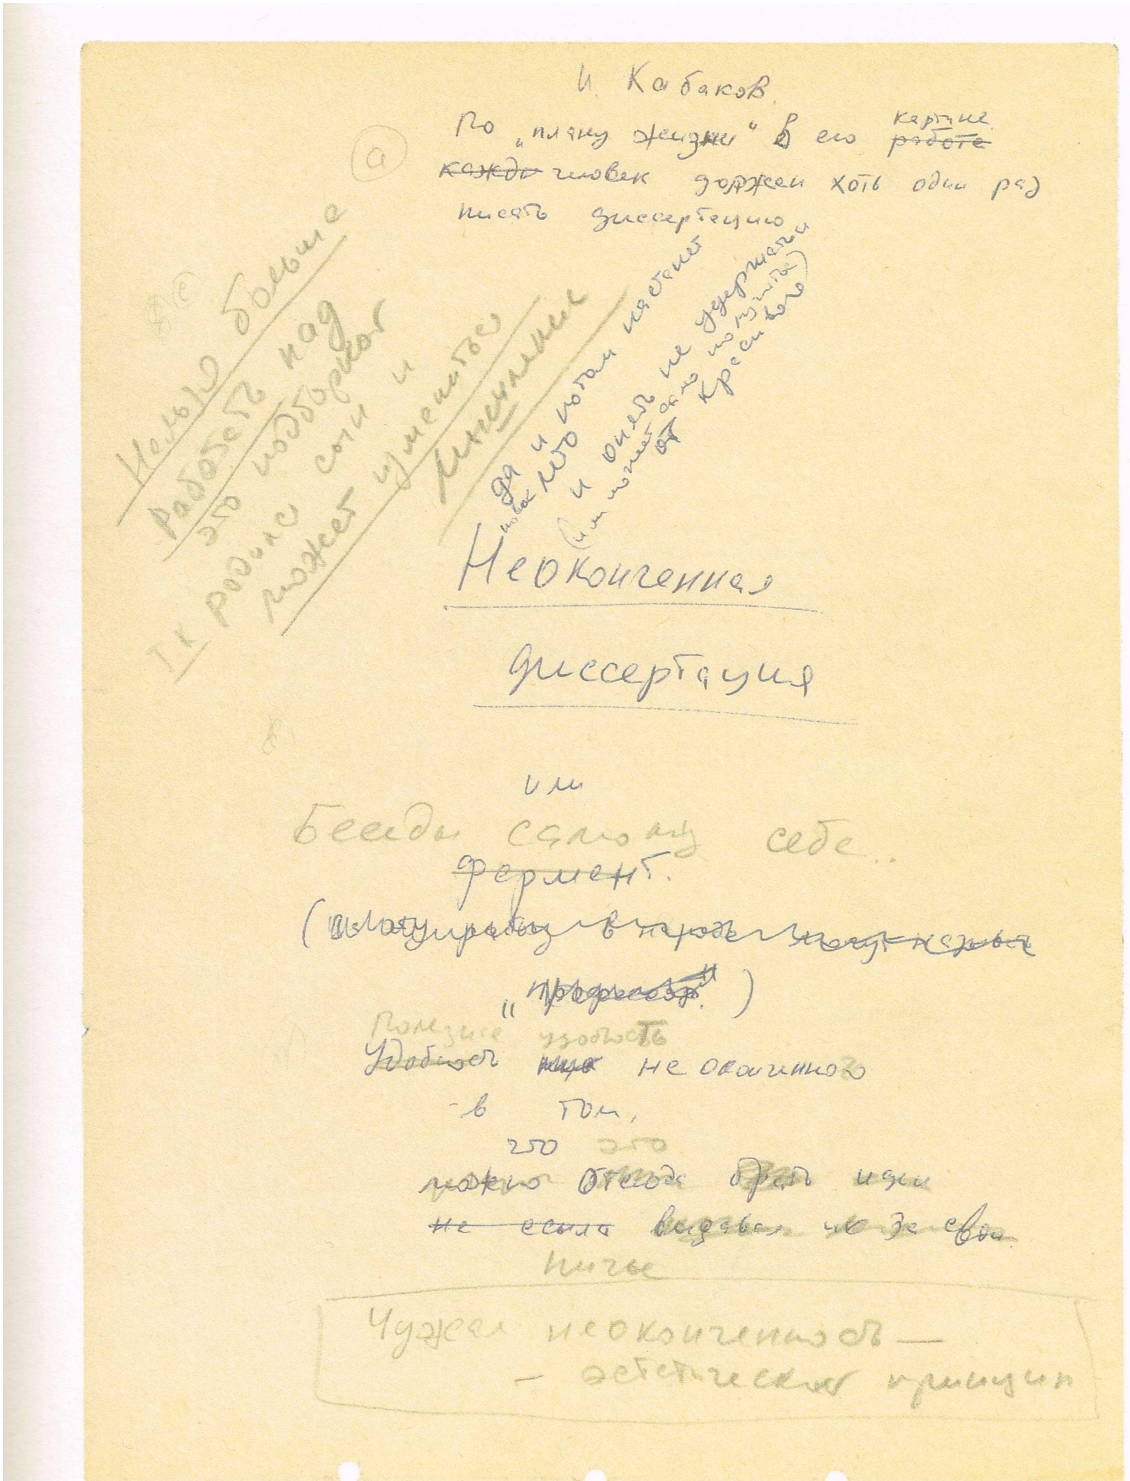 И. Кабаков.
По „плану жизни“ в его картине
работе
кажды человек должен хоть один раз
писать диссертацию
а
Нельзя больше
работать над
это подборкой
т.к родился сын и
может измениться
мышление
да и потом настанет
новое лето
и опять не удержаться
(или может само получиться)
от красивого
Неоконченная
диссертация
или
Беседы самому себе..
фермент.
(в
„профессор“.)
Полезность удобность
Удобность не оконченного
- в том,
что это
можно отсюда брать идеи
не ссыла выдавая их за свои
ничье
Чужая неоконченность —
— эстетический принцип